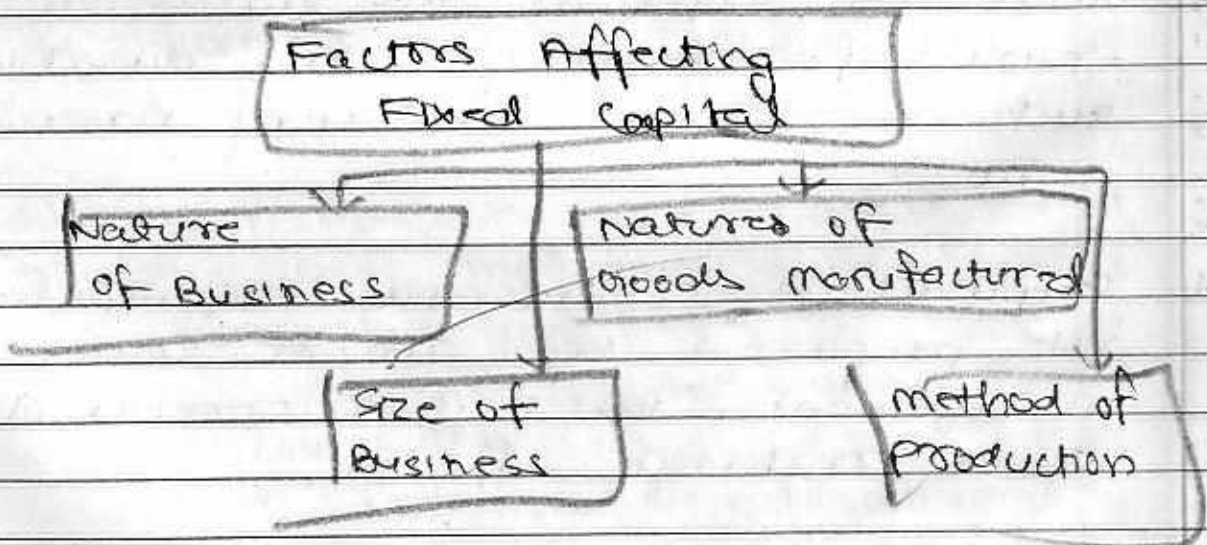 Factors Affecting
Fixed Capital
Nature
of Business
Natures of
Goods manufactured
Size of
Business
method of
production